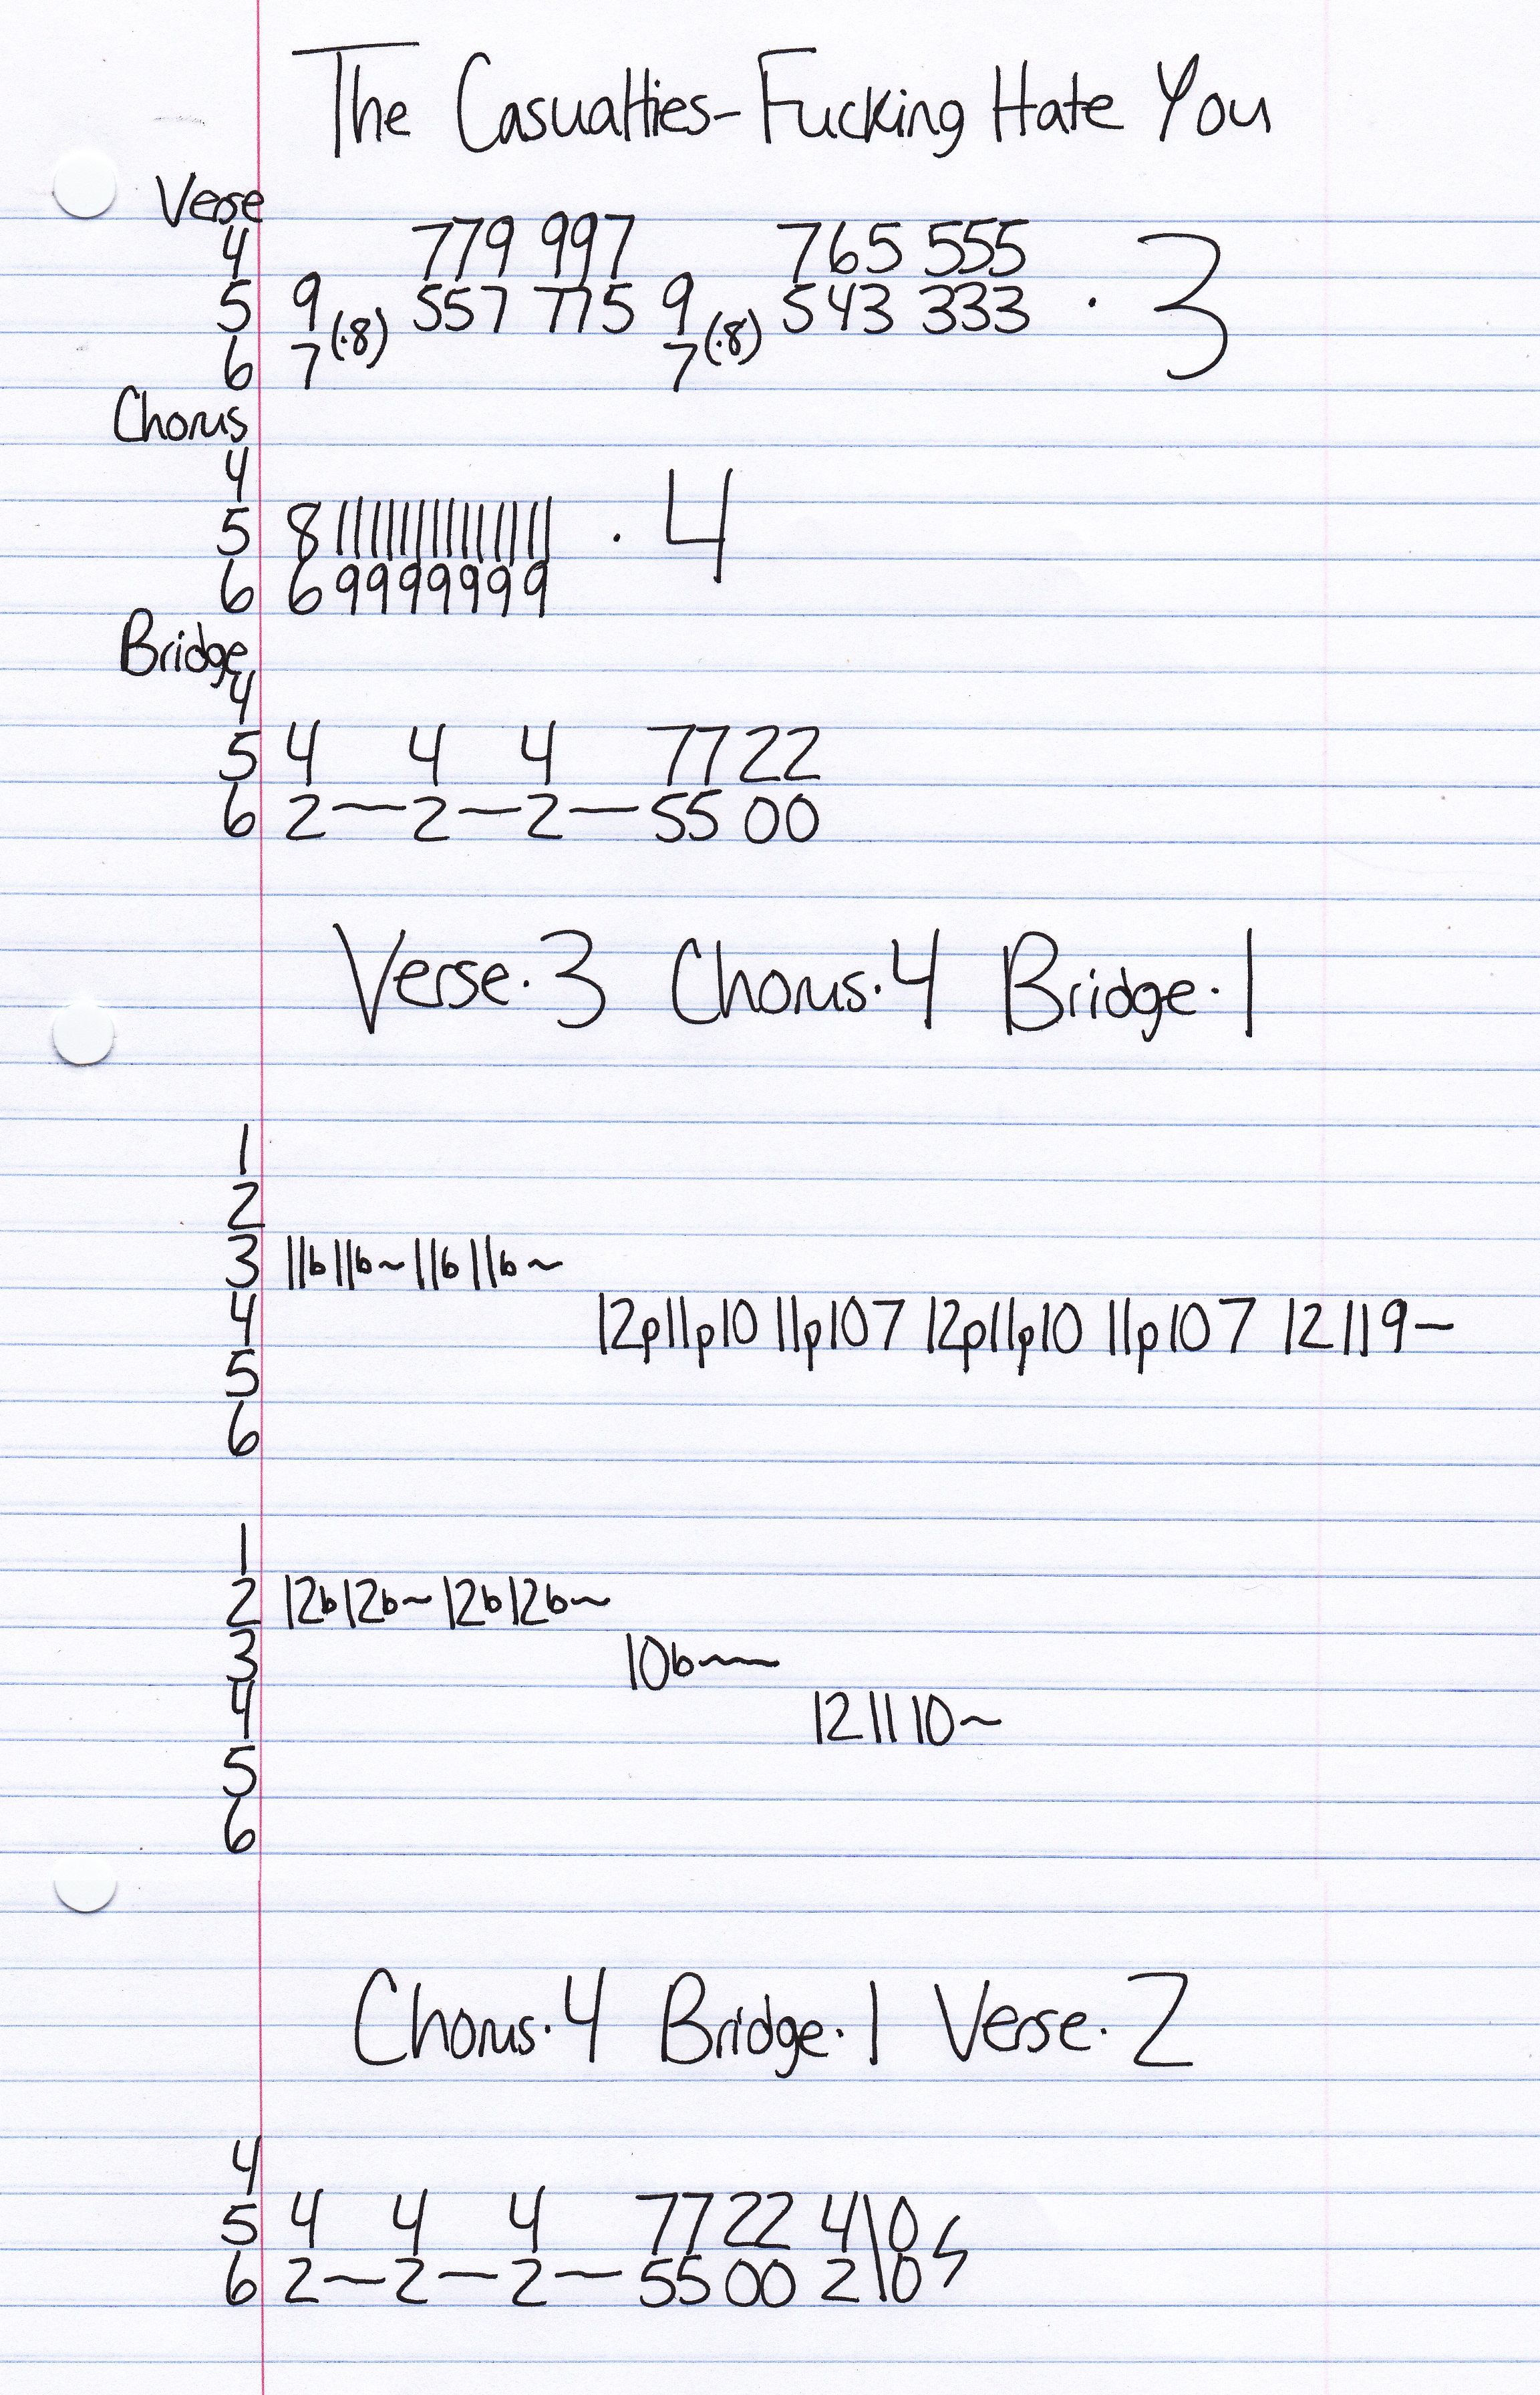 The Casualties-Fucking Hate You
Verse
4 779 997 765 555
5 9 557 775 9 543 333 · 3
(·8) (·8)
6 7 7
Chorus
4
5 8 11 11 11 11 11 11 11 · 4
6 6 9 9 9 9 9 9 9
Bridge
4
5 4 4 4 7722
6 2~2~2~5500
Verse·3 Chorus·4 Bridge·1
1
2
3 11b11b~11b11b~
4 12p11p10 11p107 12p11p10 11p107 12119~
5
6
1
2 12b12b~12b12b~
3 10b~
4 121110~
5
6
Chorus·4 Bridge·1 Verse·2
4
5 4 4 4 7722 4\0
6 2~2~2~5500 2\0